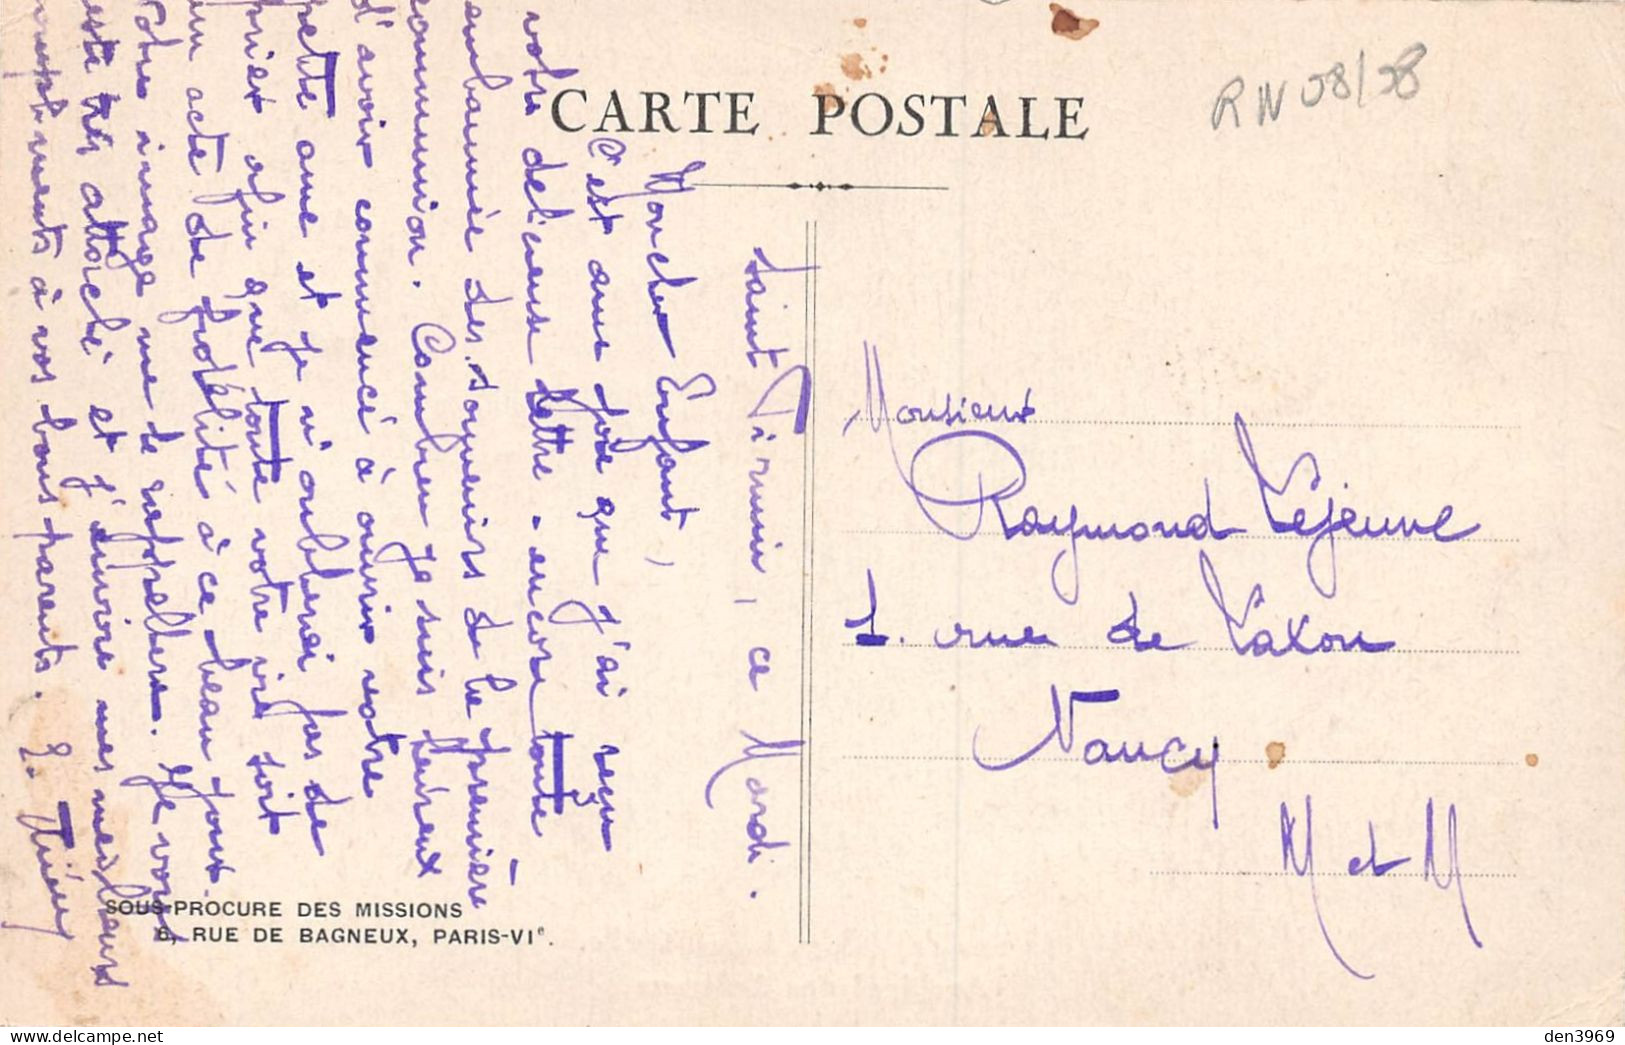 CARTE POSTALE
RN 08/38
Saint Firmin, ce Mardi.
Mon cher Enfant,
C'est une joie que j'ai reçu
votre délicieuse lettre - encore toute
embaumée des souvenirs de la première
communion. Combien je suis heureux
d'avoir commencé à ouvrir votre
petite ame et je n'oublierai pas de
prier afin que toute votre vie soit
un acte de fidélité à ce beau jour.
Votre image me le rappellera. Je vous
reste très attaché et j'envoie mes meilleurs
compliments à vos bons parents.
Monsieur
Raymond Lejeune
1. rue de Laxou
Nancy
M et M
SOUS-PROCURE DES MISSIONS
6, RUE DE BAGNEUX, PARIS-VIe.
den3969